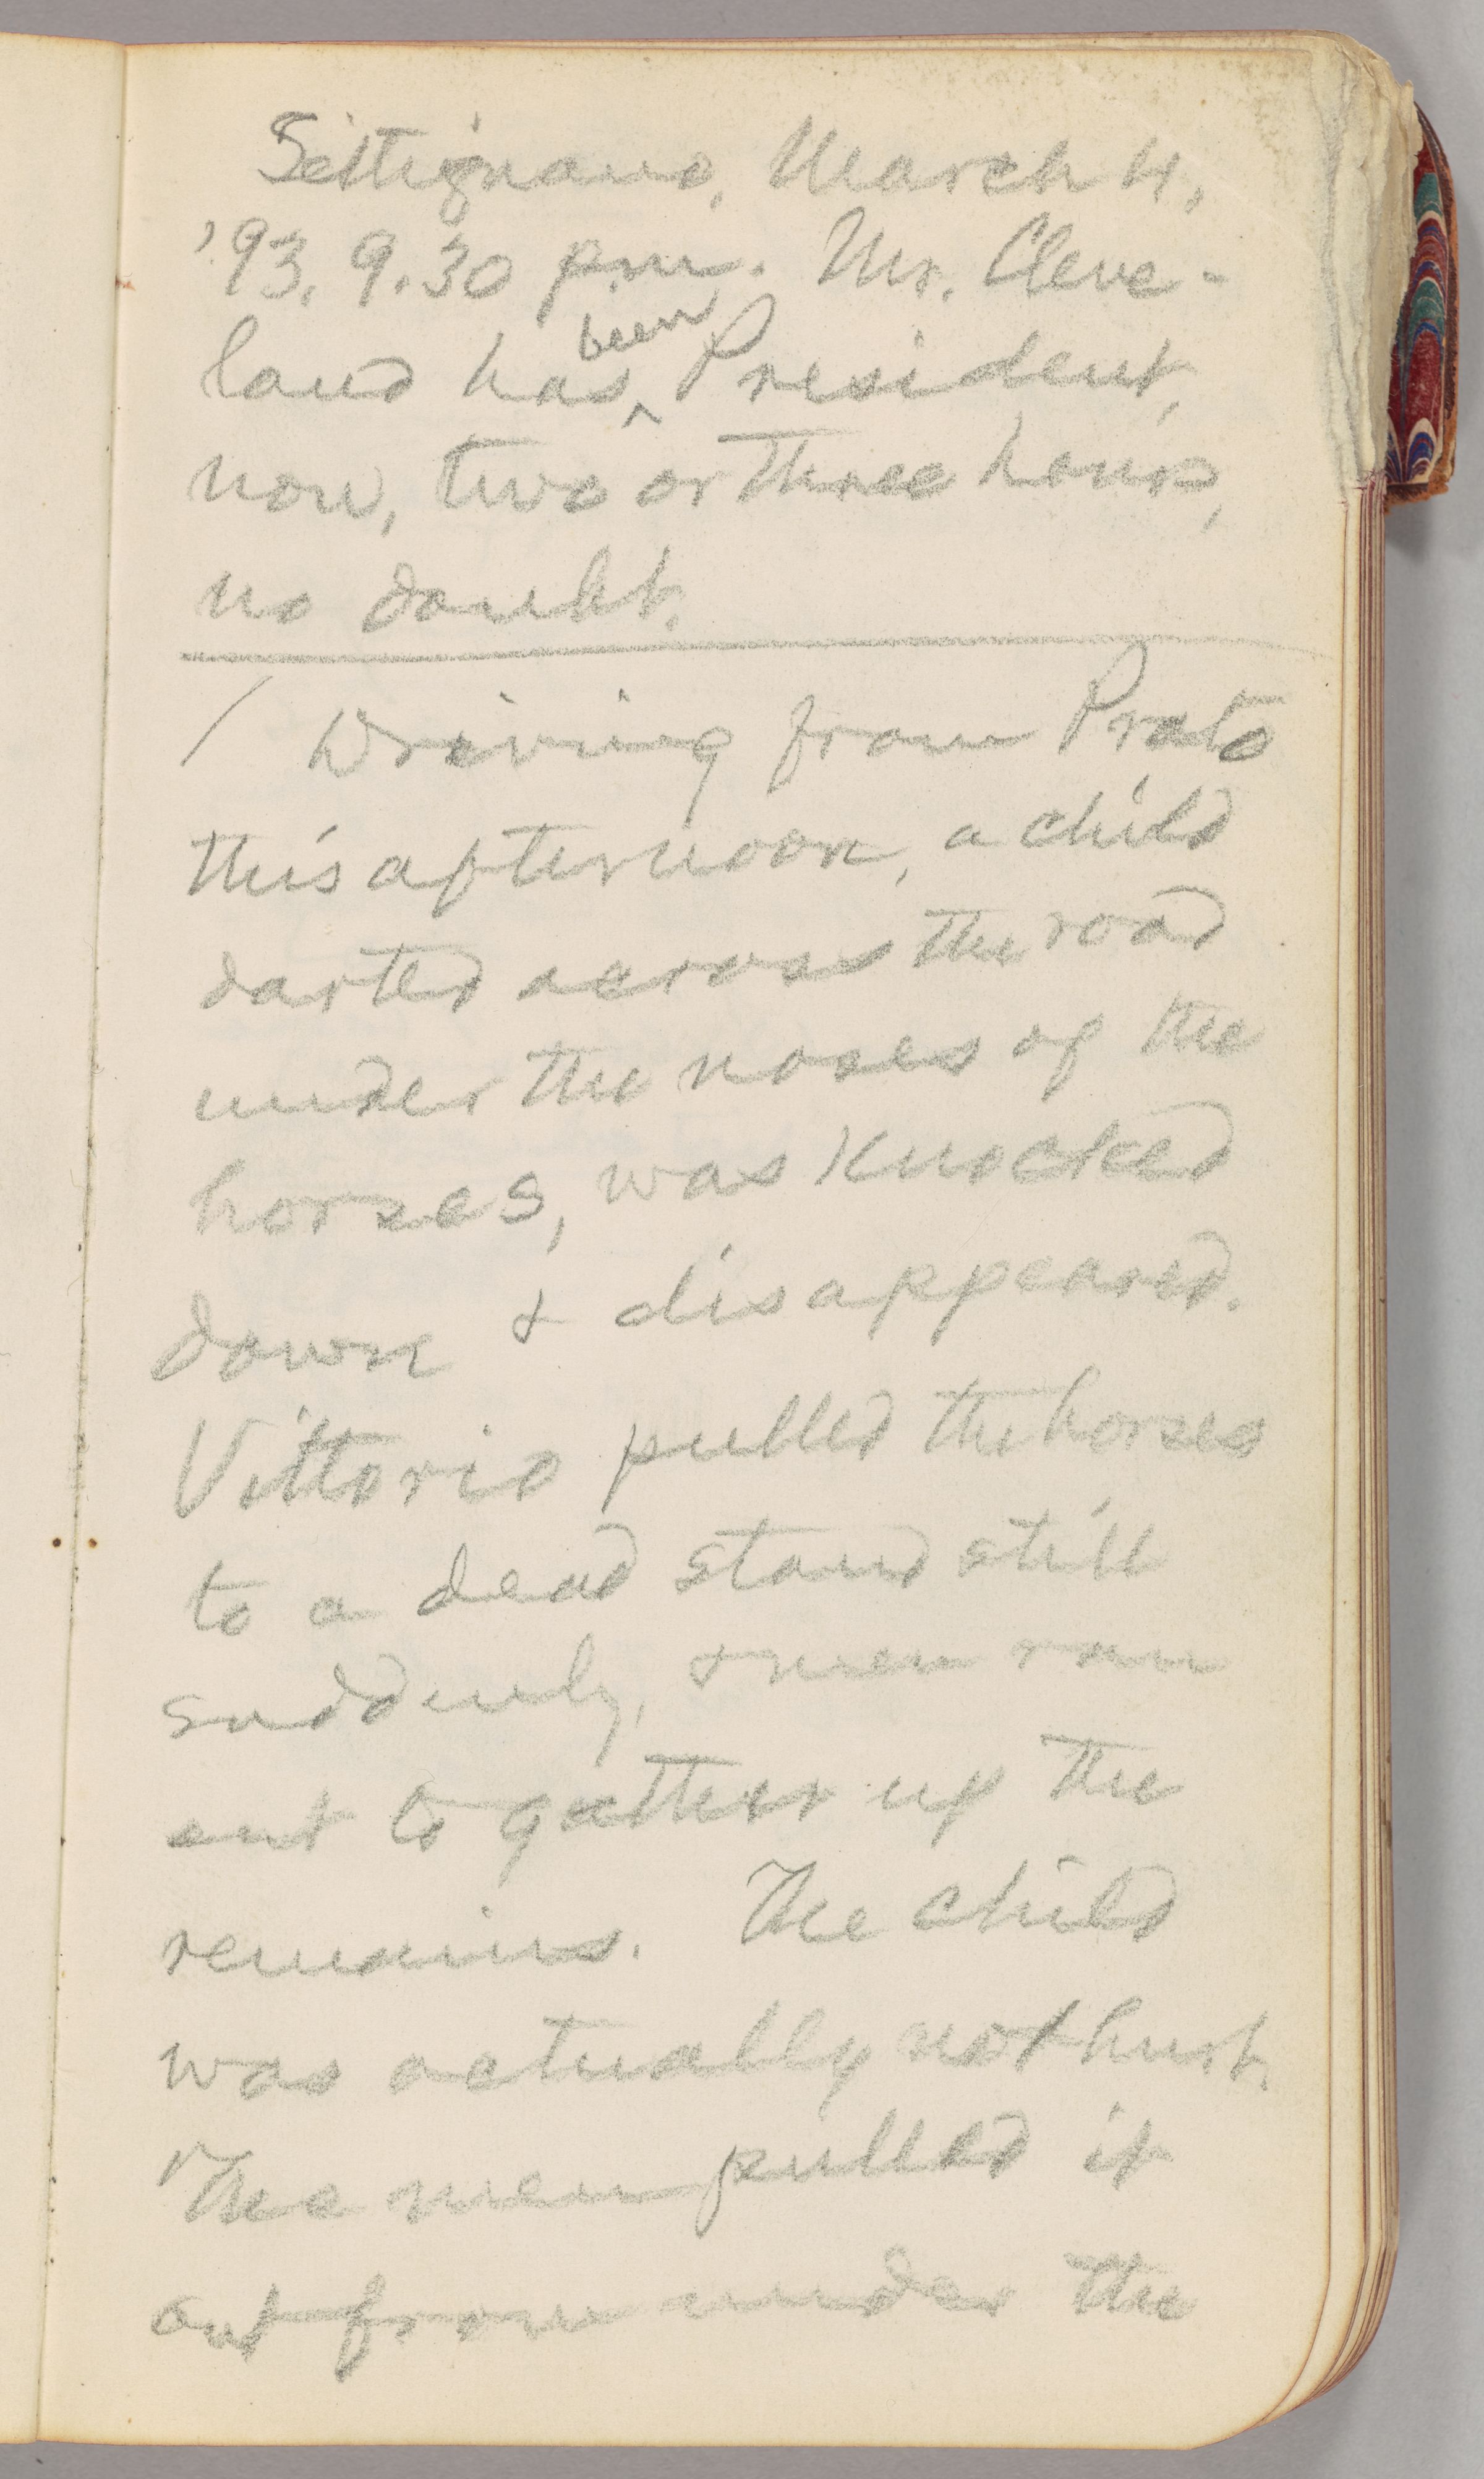 Settignano, March 4,
'93, 9.30 p.m. Mr. Cleve-
land has been President,
now, two or three hours,
no doubt.
/ Driving from Prato
this afternoon, a child
darted across the road
under the noses of the
horses, was knocked
down & disappeared.
Vittorio pulled the horses
to a dead stand still
suddenly, & men ran
out to gather up the
remains. The child
was actually not hurt.
The men pulled it
out from under the